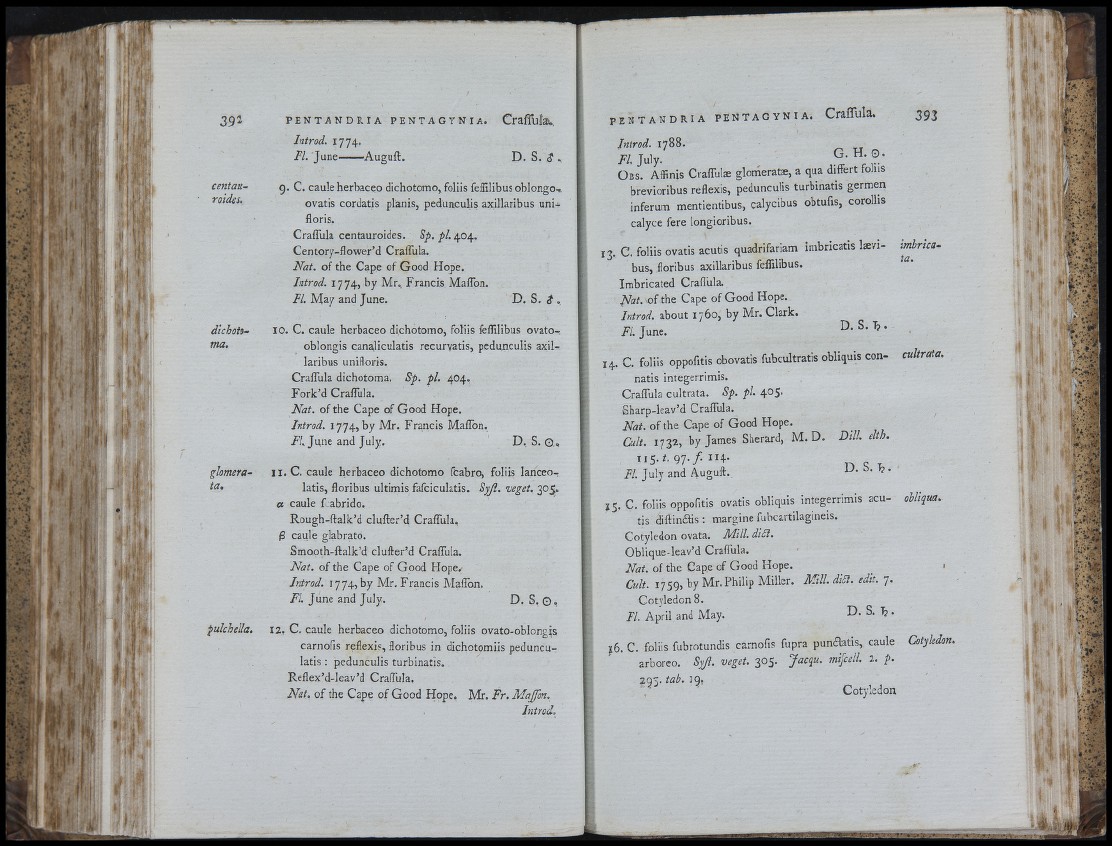 392 PENTANDRIA PENTAGYNIA. Craſſula.
Introd. 1774.
Fl. June——Auguſt. D. S. ♂.
centau-
roides.
9. C. caule herbaceo dichotomo, foliis ſeſſilibus oblongo-
ovatis cordatis planis, pedunculis axillaribus uni-
floris.
Craſſula centauroides. Sp. pl. 404.
Centory-flower'd Craſſula.
Nat. of the Cape of Good Hope.
Introd. 1774, by Mr. Francis Maſſon.
Fl. May and June. D. S. ♂.
dichoto-
ma.
10. C. caule herbaceo dichotomo, foliis ſeſſilibus ovato-
oblongis canaliculatis recurvatis, pedunculis axil-
laribus unifloris.
Craſſula dichotoma. Sp. pl. 404.
Fork'd Craſſula.
Nat. of the Cape of Good Hope.
Introd. 1774, by Mr. Francis Maſſon.
Fl. June and July. D. S. ☉.
glomera-
ta.
11. C. caule herbaceo dichotomo ſcabro, foliis lanceo-
latis, floribus ultimis faſciculatis. Syſt. veget. 305.
α caule ſ abrido.
Rough-ſtalk'd cluſter'd Craſſula.
β caule glabrato.
Smooth-ſtalk'd cluſter'd Craſſula.
Nat. of the Cape of Good Hope.
Introd. 1774, by Mr. Francis Maſſon.
Fl. June and July. D. S. ☉.
pulchella. 12. C. caule herbaceo dichotomo, foliis ovato-oblongis
carnoſis reflexis, floribus in dichotomiis peduncu-
latis : pedunculis turbinatis.
Reflex'd-leav'd Craſſula.
Nat. of the Cape of Good Hope. Mr. Fr. Maſſon.
Introd.
PENTANDRIA PENTAGYNIA. Craſſula. 393
Introd. 1788.
Fl. July. G. H. ☉.
OBS. Affinis Craſſulæ glomeratæ, a qua differt foliis
brevioribus reflexis, pedunculis turbinatis germen
inferum mentientibus, calycibus obtuſis, corollis
calyce fere longioribus.
13. C. foliis ovatis acutis quadrifariam imbricatis lævi-
bus, floribus axillaribus ſeſſilibus.
imbrica-
ta.
Imbricated Craſſula.
Nat. of the Cape of Good Hope.
Introd. about 1760, by Mr. Clark.
Fl. June. D. S. ♄.
14. C. foliis oppoſitis obovatis ſubcultratis obliquis con- cultrata.
natis integerrimis.
Craſſula cultrata. Sp. pl. 405.
Sharp-leav'd Craſſula.
Nat. of the Cape of Good Hope.
Cult. 1732, by James Sherard, M. D. Dill. elth.
115. t. 97. f. 114.
Fl. July and Auguſt. D. S. ♄.
15. C. foliis oppoſitis ovatis obliquis integerrimis acu- obliqua.
tis diſtinctis : margine ſubcartilagineis.
Cotyledon ovata. Mill. dict.
Oblique-leav'd Craſſula.
Nat. of the Cape of Good Hope.
Cult. 1759, by Mr. Philip Miller. Mill. dict. edit. 7.
Cotyledon 8.
Fl. April and May. D. S. ♄.
16. C. foliis ſubrotundis carnoſis ſupra punctatis, caule Cotyledon.
arboreo. Syſt. veget. 305. Jacqu. miſcell. 2. p.
295. tab. 19.
Cotyledon